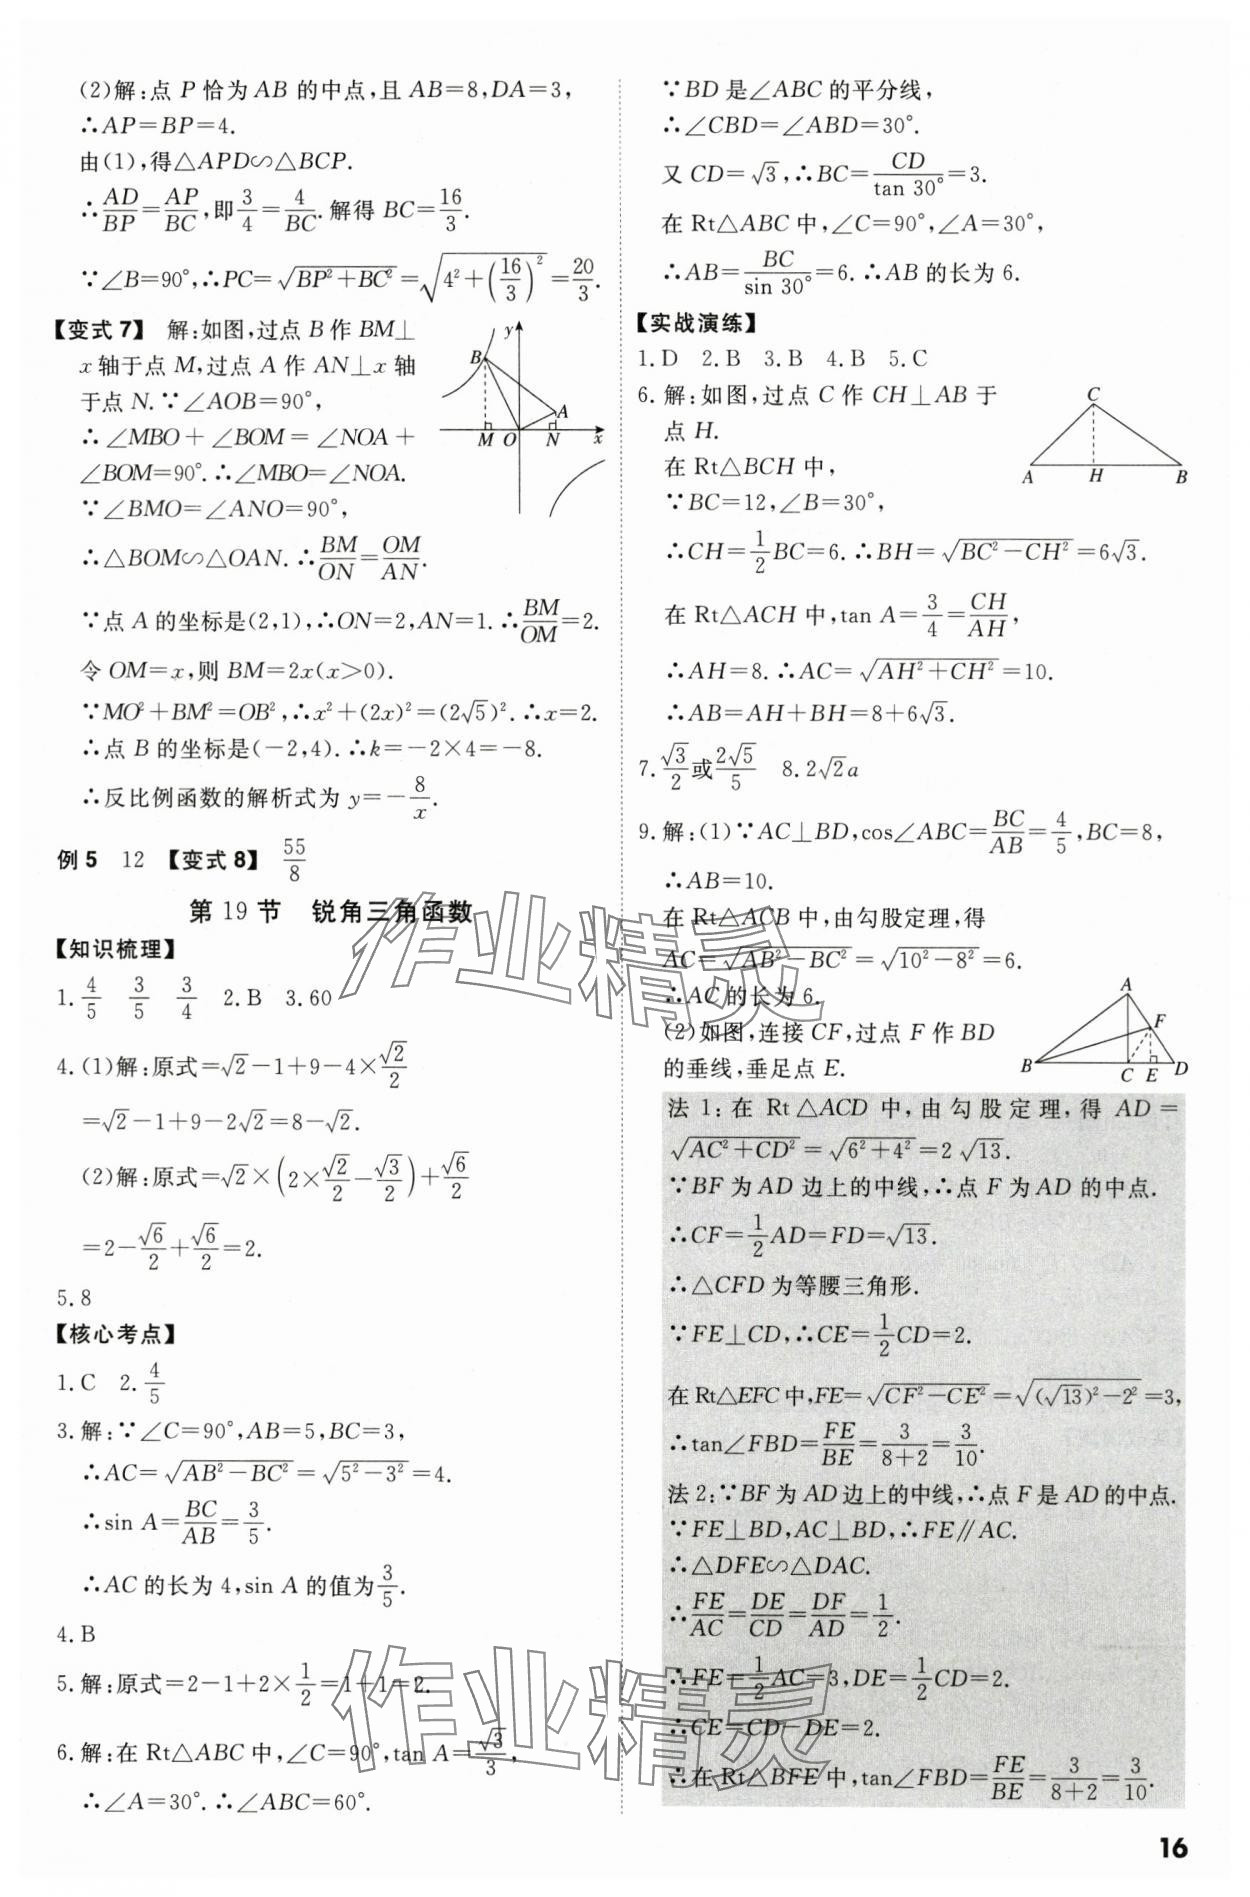 (2)解:点 P 恰为 AB 的中点,且 AB=8,DA=3,
∴AP=BP=4.
由(1),得△APD∽△BCP.
∴AD/BP=AP/BC,即3/4=4/BC.解得 BC=16/3.
∵∠B=90°,∴PC=√(BP²+BC²)=√(4²+(16/3)²)=20/3.
【变式 7】 解:如图,过点 B 作 BM⊥
x 轴于点 M,过点 A 作 AN⊥x 轴
于点 N.∵∠AOB=90°,
∴∠MBO+∠BOM=∠NOA+
∠BOM=90°.∴∠MBO=∠NOA.
∵∠BMO=∠ANO=90°,
∴△BOM∽△OAN.∴BM/ON=OM/AN.
y
B
A
M O N x
∵点 A 的坐标是(2,1),∴ON=2,AN=1.∴BM/OM=2.
令 OM=x,则 BM=2x(x>0).
∵MO²+BM²=OB²,∴x²+(2x)²=(2√5)².∴x=2.
∴点 B 的坐标是(-2,4).∴k=-2×4=-8.
∴反比例函数的解析式为 y=-8/x.
例 5 12 【变式 8】 55/8
第 19 节 锐角三角函数
【知识梳理】
1.4/5 3/5 3/4 2.B 3.60
4.(1)解:原式=√2-1+9-4×√2/2
=√2-1+9-2√2=8-√2.
(2)解:原式=√2×(2×√2/2-√3/2)+√6/2
=2-√6/2+√6/2=2.
5.8
【核心考点】
1.C 2.4/5
3.解:∵∠C=90°,AB=5,BC=3,
∴AC=√(AB²-BC²)=√(5²-3²)=4.
∴sin A=BC/AB=3/5.
∴AC 的长为 4,sin A 的值为3/5.
4.B
5.解:原式=2-1+2×1/2=1+1=2.
6.解:在 Rt△ABC 中,∠C=90°,tan A=√3/3,
∴∠A=30°.∴∠ABC=60°.
∵BD 是∠ABC 的平分线,
∴∠CBD=∠ABD=30°.
又 CD=√3,∴BC=CD/tan 30°=3.
在 Rt△ABC 中,∠C=90°,∠A=30°,
∴AB=BC/sin 30°=6.∴AB 的长为 6.
【实战演练】
1.D 2.B 3.B 4.B 5.C
6.解:如图,过点 C 作 CH⊥AB 于
点 H.
在 Rt△BCH 中,
∵BC=12,∠B=30°,
C
A H B
∴CH=1/2BC=6.∴BH=√(BC²-CH²)=6√3.
在 Rt△ACH 中,tan A=3/4=CH/AH,
∴AH=8.∴AC=√(AH²+CH²)=10.
∴AB=AH+BH=8+6√3.
7.√3/2或2√5/5 8.2√2a
9.解:(1)∵AC⊥BD,cos∠ABC=BC/AB=4/5,BC=8,
∴AB=10.
在 Rt△ACB 中,由勾股定理,得
AC=√(AB²-BC²)=√(10²-8²)=6.
∴AC 的长为 6.
(2)如图,连接 CF,过点 F 作 BD
的垂线,垂足点 E.
A
F
B C E D
法 1:在 Rt△ACD 中,由勾股定理,得 AD=
√(AC²+CD²)=√(6²+4²)=2√13.
∵BF 为 AD 边上的中线,∴点 F 为 AD 的中点.
∴CF=1/2AD=FD=√13.
∴△CFD 为等腰三角形.
∵FE⊥CD,∴CE=1/2CD=2.
在 Rt△EFC 中,FE=√(CF²-CE²)=√((√13)²-2²)=3,
∴tan∠FBD=FE/BE=3/(8+2)=3/10.
法 2:∵BF 为 AD 边上的中线,∴点 F 是 AD 的中点.
∵FE⊥BD,AC⊥BD,∴FE∥AC.
∴△DFE∽△DAC.
∴FE/AC=DE/CD=DF/AD=1/2.
∴FE=1/2AC=3,DE=1/2CD=2.
∴CE=CD-DE=2.
∴在 Rt△BFE 中,tan∠FBD=FE/BE=3/(8+2)=3/10.
作业精灵
作业精灵
16